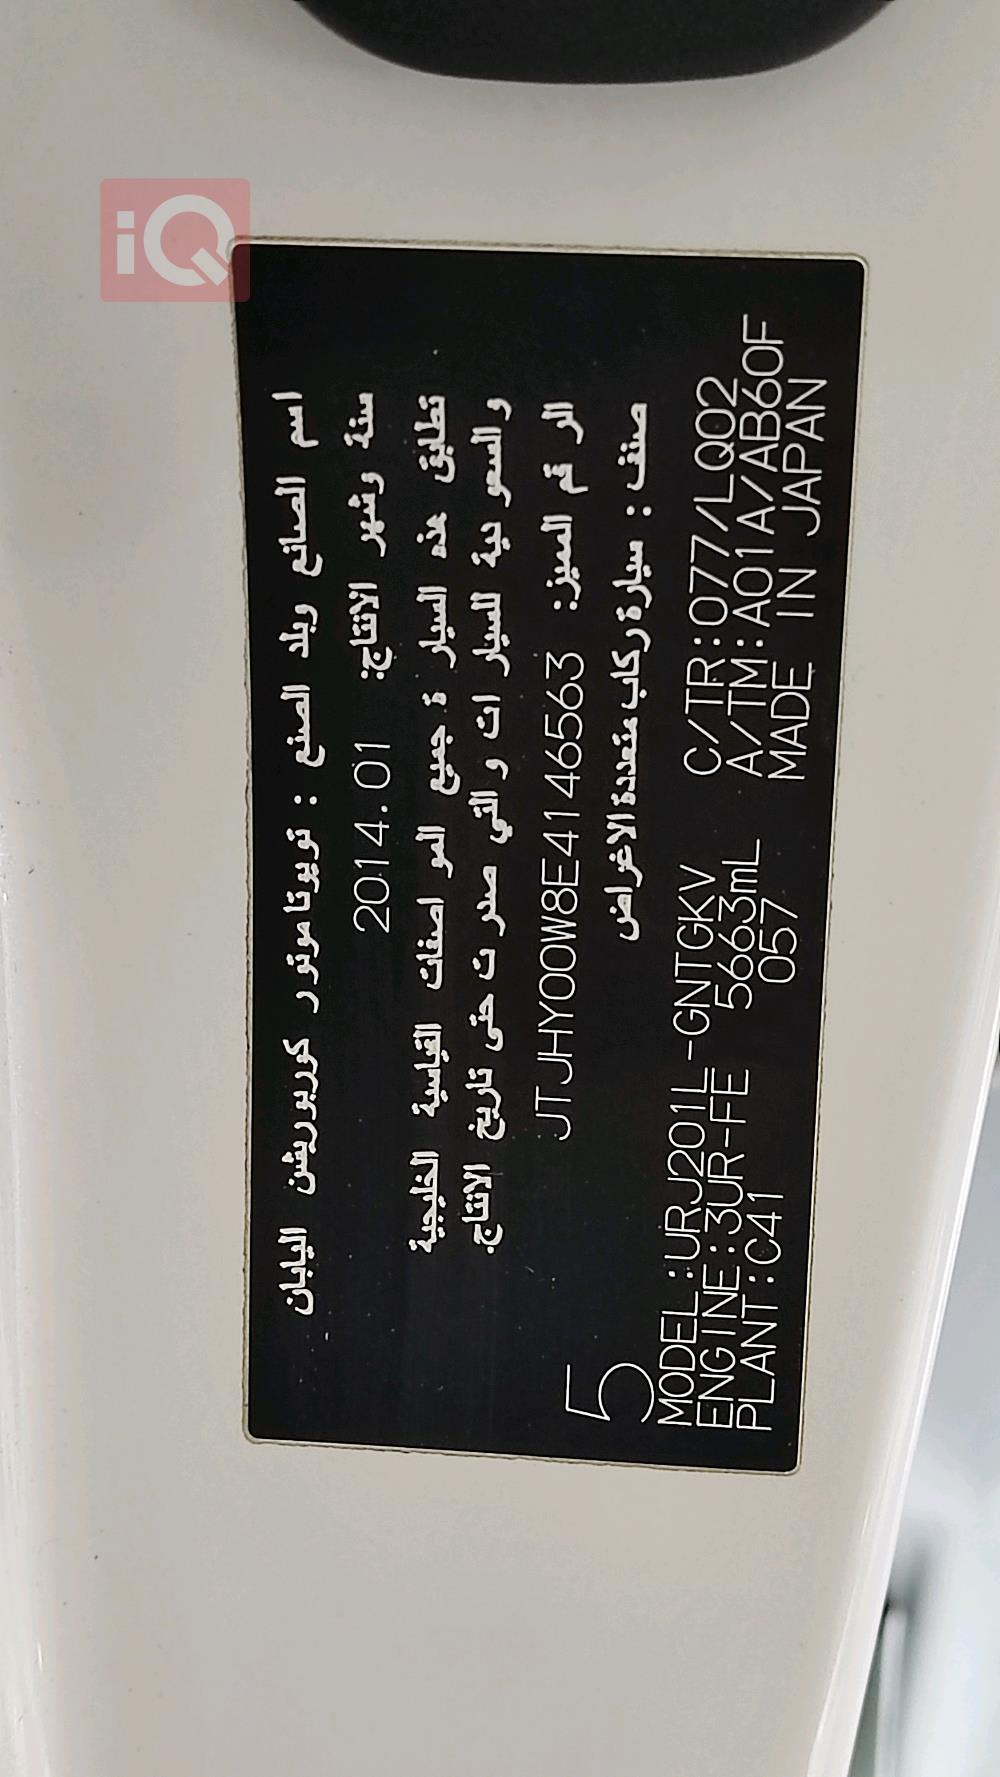 iQ
اسم الصانع وبلد الصنع : تويوتا موتور كوربوريشن اليابان
سنة وشهر الانتاج: 2014.01
تطابق هذه السيارة جميع المواصفات القياسية الخليجية
والسعودية للسيارات والتي صدرت حتى تاريخ الانتاج.
الرقم المميز: JTJHY00W8E4146563
صنف : سيارة ركاب متعددة الاغراض
5
MODEL:URJ201L-GNTGKV C/TR:077/LQ02
ENGINE:3UR-FE 5663mL A/TM:A01A/AB60F
PLANT:C41 057 MADE IN JAPAN